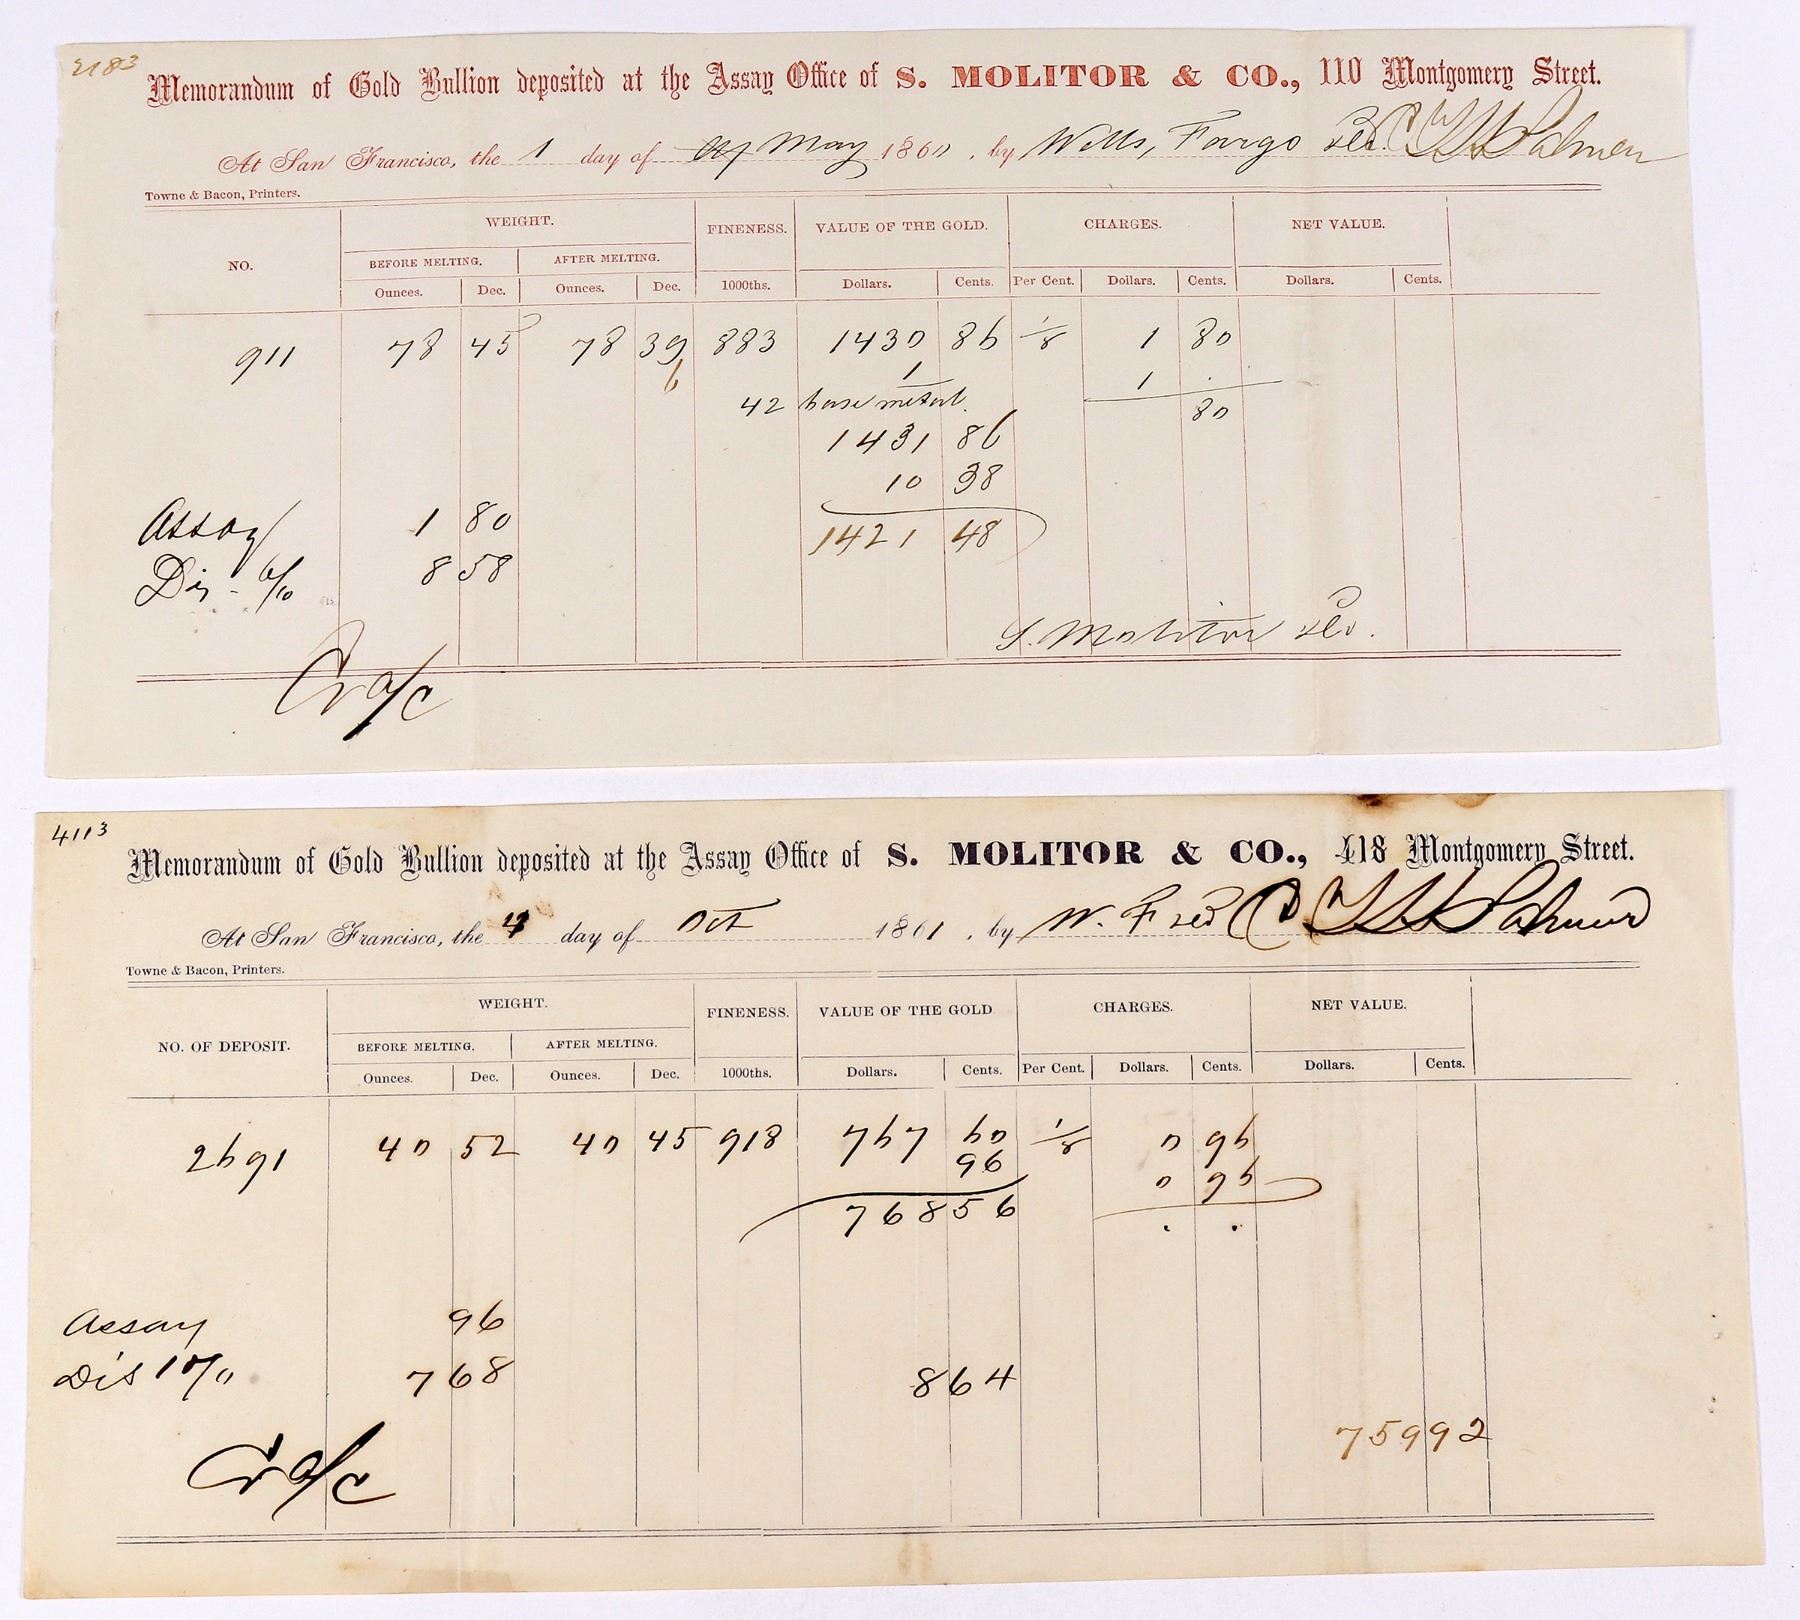 2183
Memorandum of Gold Bullion deposited at the Assay Office of S. MOLITOR & CO., 110 Montgomery Street.
At San Francisco, the 1 day of May 1860, by Wells, Fargo &Co. Palmer
Towne & Bacon, Printers.
NO. WEIGHT. FINENESS. VALUE OF THE GOLD. CHARGES. NET VALUE.
BEFORE MELTING. AFTER MELTING.
Ounces. Dec. Ounces. Dec. 1000ths. Dollars. Cents. Per Cent. Dollars. Cents. Dollars. Cents.
911 78 45 78 39 883 1430 86 1/8 1 80
6 1 1 .
42 base metal 80
1431 86
10 38
Assay 1 80 1421 48
Dis - 6/10 8 58
S. Molitor &Co.
Cr a/c
4113
Memorandum of Gold Bullion deposited at the Assay Office of S. MOLITOR & CO., 418 Montgomery Street.
At San Francisco, the 4 day of Oct 1861, by W. F &Co Palmer
Towne & Bacon, Printers.
NO. OF DEPOSIT. WEIGHT. FINENESS. VALUE OF THE GOLD CHARGES. NET VALUE.
BEFORE MELTING. AFTER MELTING.
Ounces. Dec. Ounces. Dec. 1000ths. Dollars. Cents. Per Cent. Dollars. Cents. Dollars. Cents.
2691 40 52 40 45 918 767 60 1/8 0 96
96 0 96
768 56 . .
Assay 96
Dis 1 0/0 7 68 8 64
759 92
Cr a/c